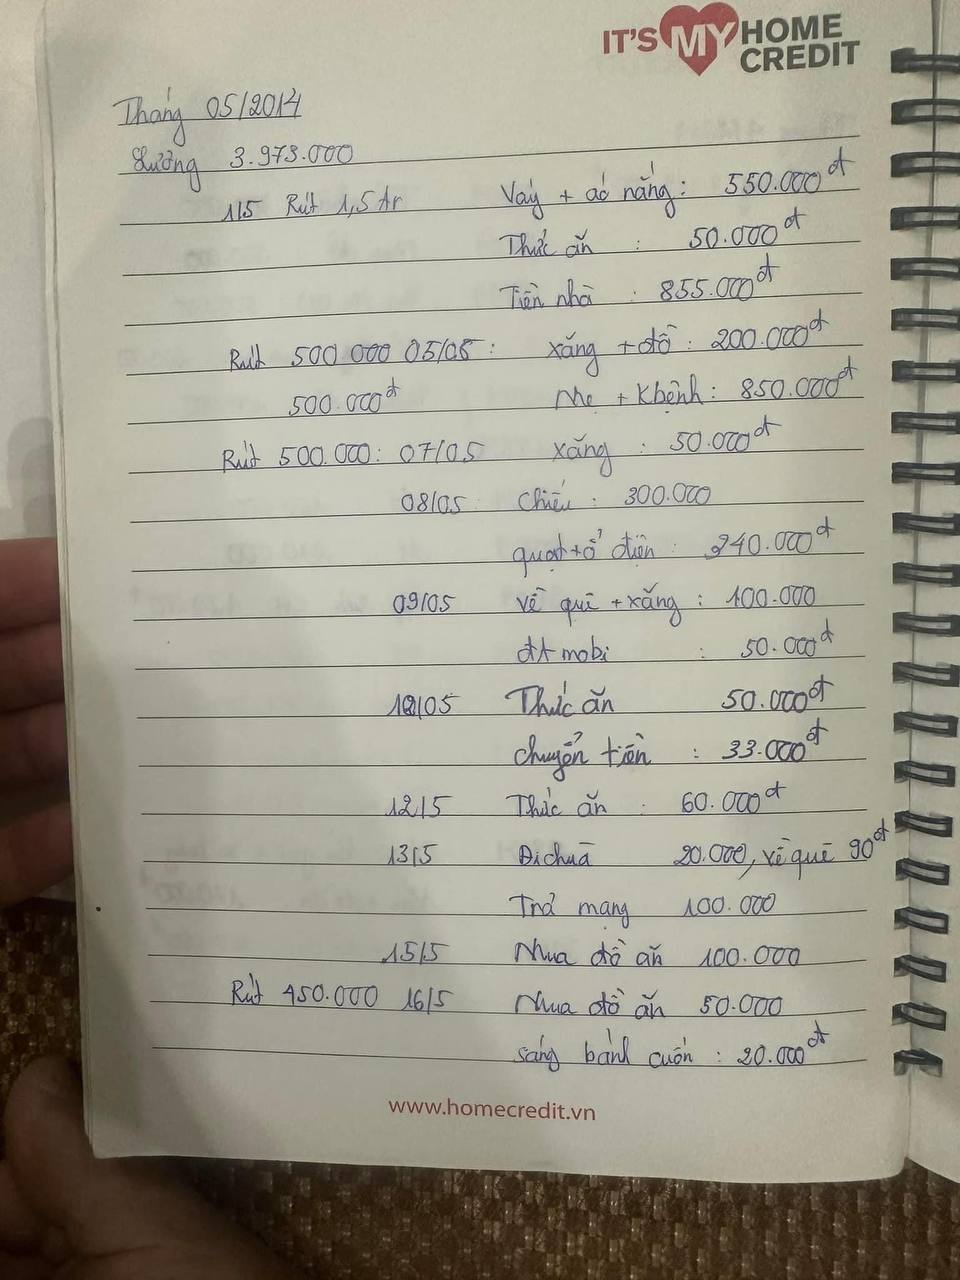 IT'S MY HOME CREDIT
Tháng 05/2014
Lương 3.973.000
1/5 Rút 1,5 tr Váy + áo nắng : 550.000đ
Thức ăn : 50.000đ
Tiền nhà : 855.000đ
Rút 500.000 05/05 : xăng + đồ : 200.000đ
500.000đ Mẹ + Kbệnh : 850.000đ
Rút 500.000 : 07/05 xăng : 50.000đ
08/05 chiếu : 300.000
quạt + ổ điện : 240.000đ
09/05 về quê + xăng : 100.000
đt mobi : 50.000đ
/05 Thức ăn 50.000đ
chuyển tiền : 33.000đ
12/5 Thức ăn : 60.000đ
13/5 Đi chùa 20.000, về quê 90đ
Trả mạng 100.000
15/5 Mua đồ ăn 100.000
Rút 450.000 16/5 Mua đồ ăn 50.000
sáng bánh cuốn : 20.000đ
www.homecredit.vn